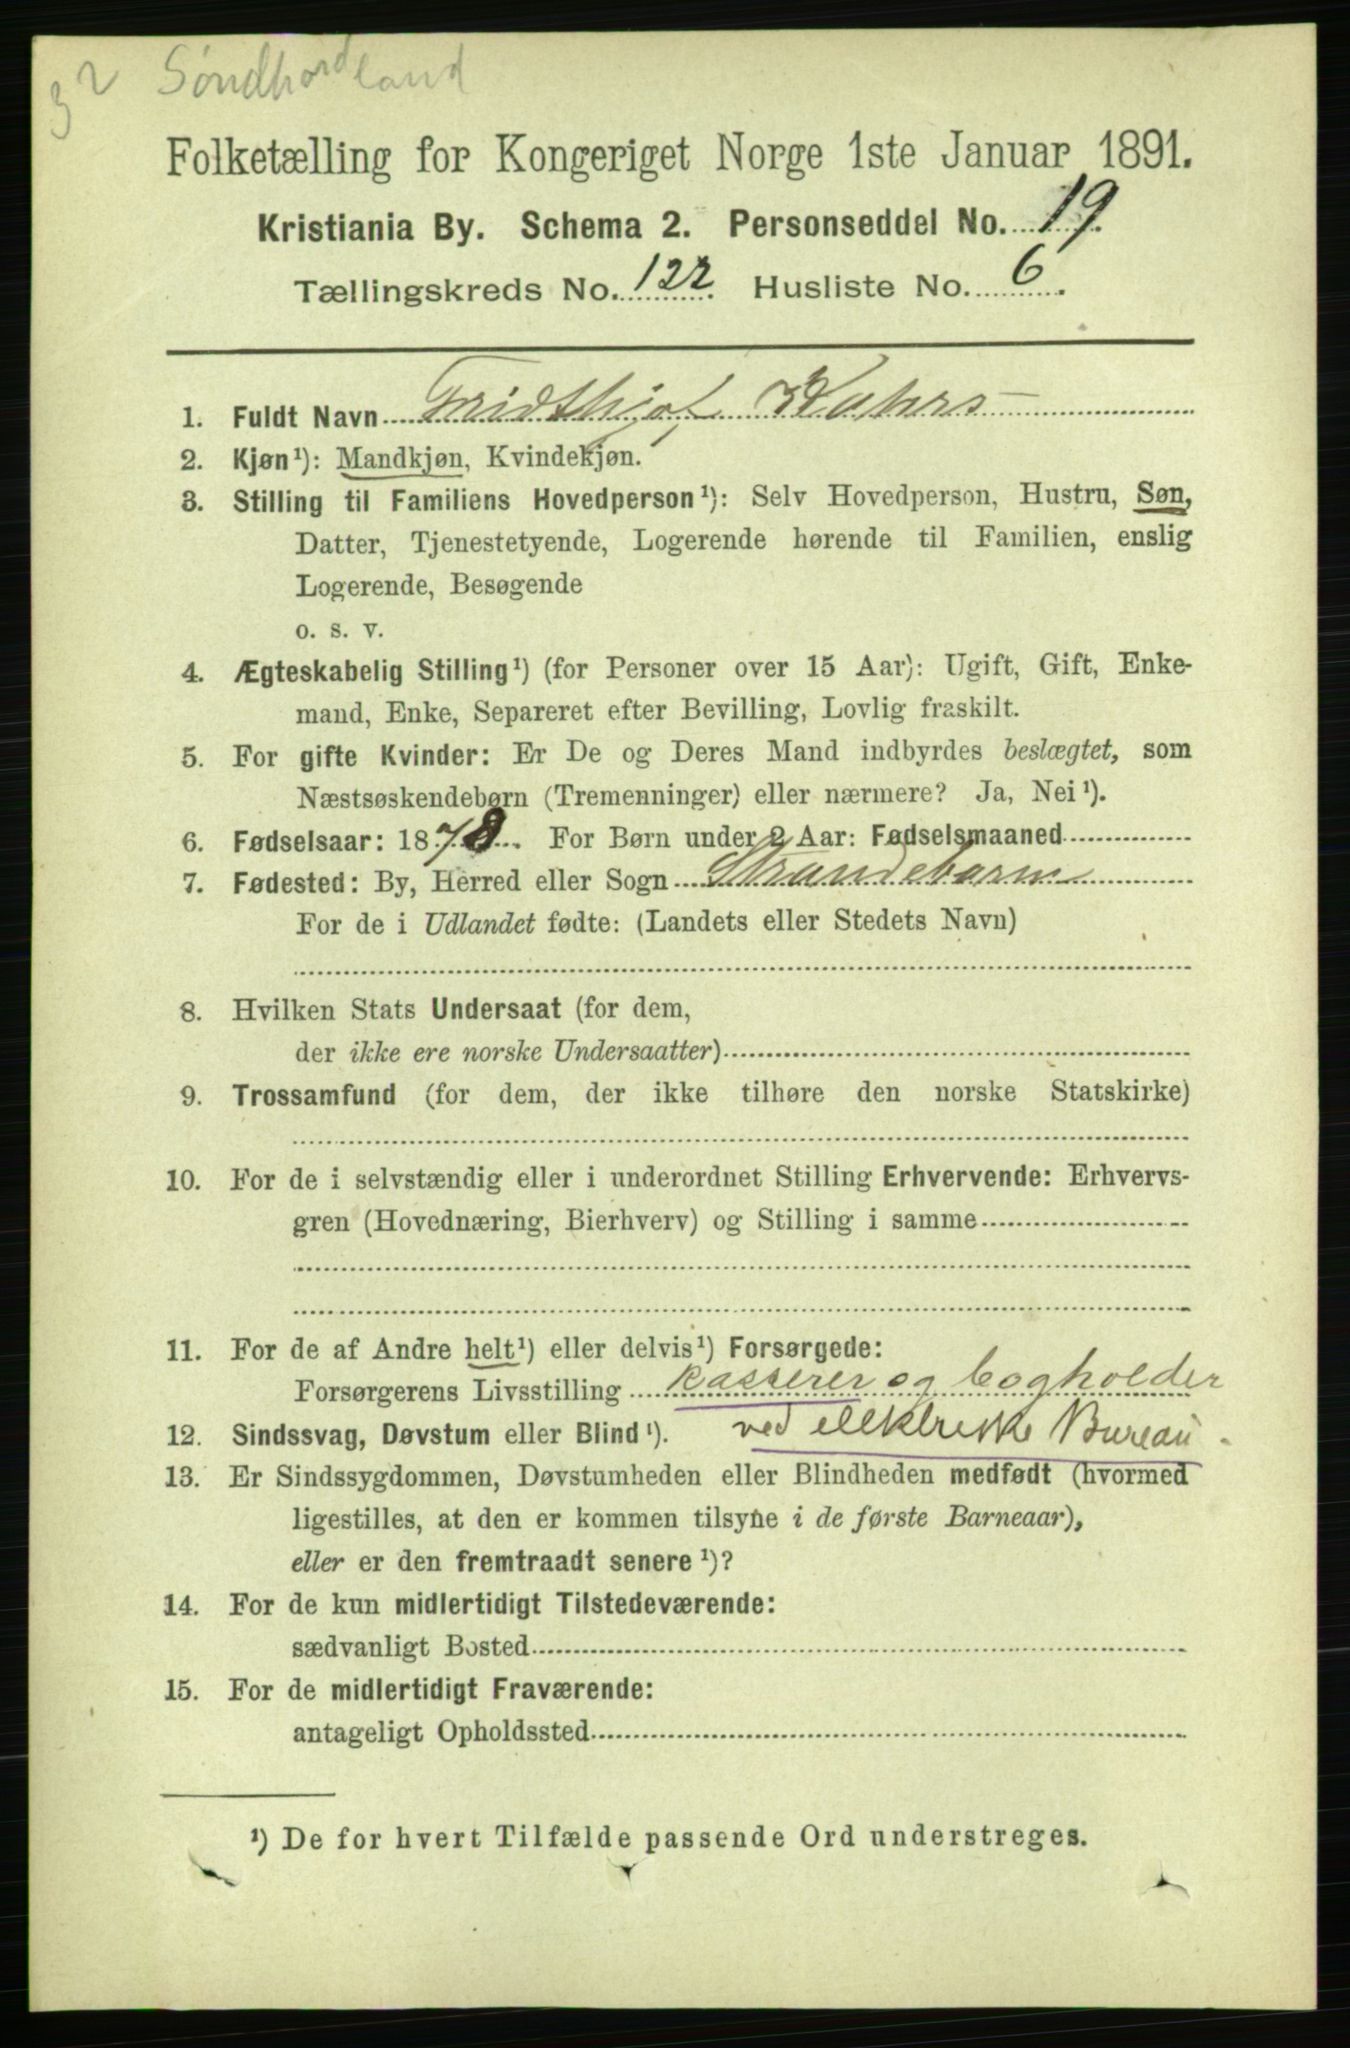 32 Søndhordland
Folketælling for Kongeriget Norge 1ste Januar 1891.
Kristiania By. Schema 2. Personseddel No. 19.
Tællingskreds No. 122. Husliste No. 6.
1. Fuldt Navn Fridthjof Kahrs
2. Kjøn¹): Mandkjøn, Kvindekjøn.
3. Stilling til Familiens Hovedperson¹): Selv Hovedperson, Hustru, Søn,
Datter, Tjenestetyende, Logerende hørende til Familien, enslig
Logerende, Besøgende
o. s. v.
4. Ægteskabelig Stilling¹) (for Personer over 15 Aar): Ugift, Gift, Enke-
mand, Enke, Separeret efter Bevilling, Lovlig fraskilt.
5. For gifte Kvinder: Er De og Deres Mand indbyrdes beslægtet, som
Næstsøskendebørn (Tremenninger) eller nærmere? Ja, Nei¹).
6. Fødselsaar: 1878. For Børn under 2 Aar: Fødselsmaaned
7. Fødested: By, Herred eller Sogn Strandebarm
For de i Udlandet fødte: (Landets eller Stedets Navn)
8. Hvilken Stats Undersaat (for dem,
der ikke ere norske Undersaatter)
9. Trossamfund (for dem, der ikke tilhøre den norske Statskirke)
10. For de i selvstændig eller i underordnet Stilling Erhvervende: Erhvervs-
gren (Hovednæring, Bierhverv) og Stilling i samme
11. For de af Andre helt¹) eller delvis¹) Forsørgede:
Forsørgerens Livsstilling kasserer og bogholder
12. Sindssvag, Døvstum eller Blind¹). ved elektriske Bureau.
13. Er Sindssygdommen, Døvstumheden eller Blindheden medfødt (hvormed
ligestilles, at den er kommen tilsyne i de første Barneaar),
eller er den fremtraadt senere¹)?
14. For de kun midlertidigt Tilstedeværende:
sædvanligt Bosted
15. For de midlertidigt Fraværende:
antageligt Opholdssted
¹) De for hvert Tilfælde passende Ord understreges.